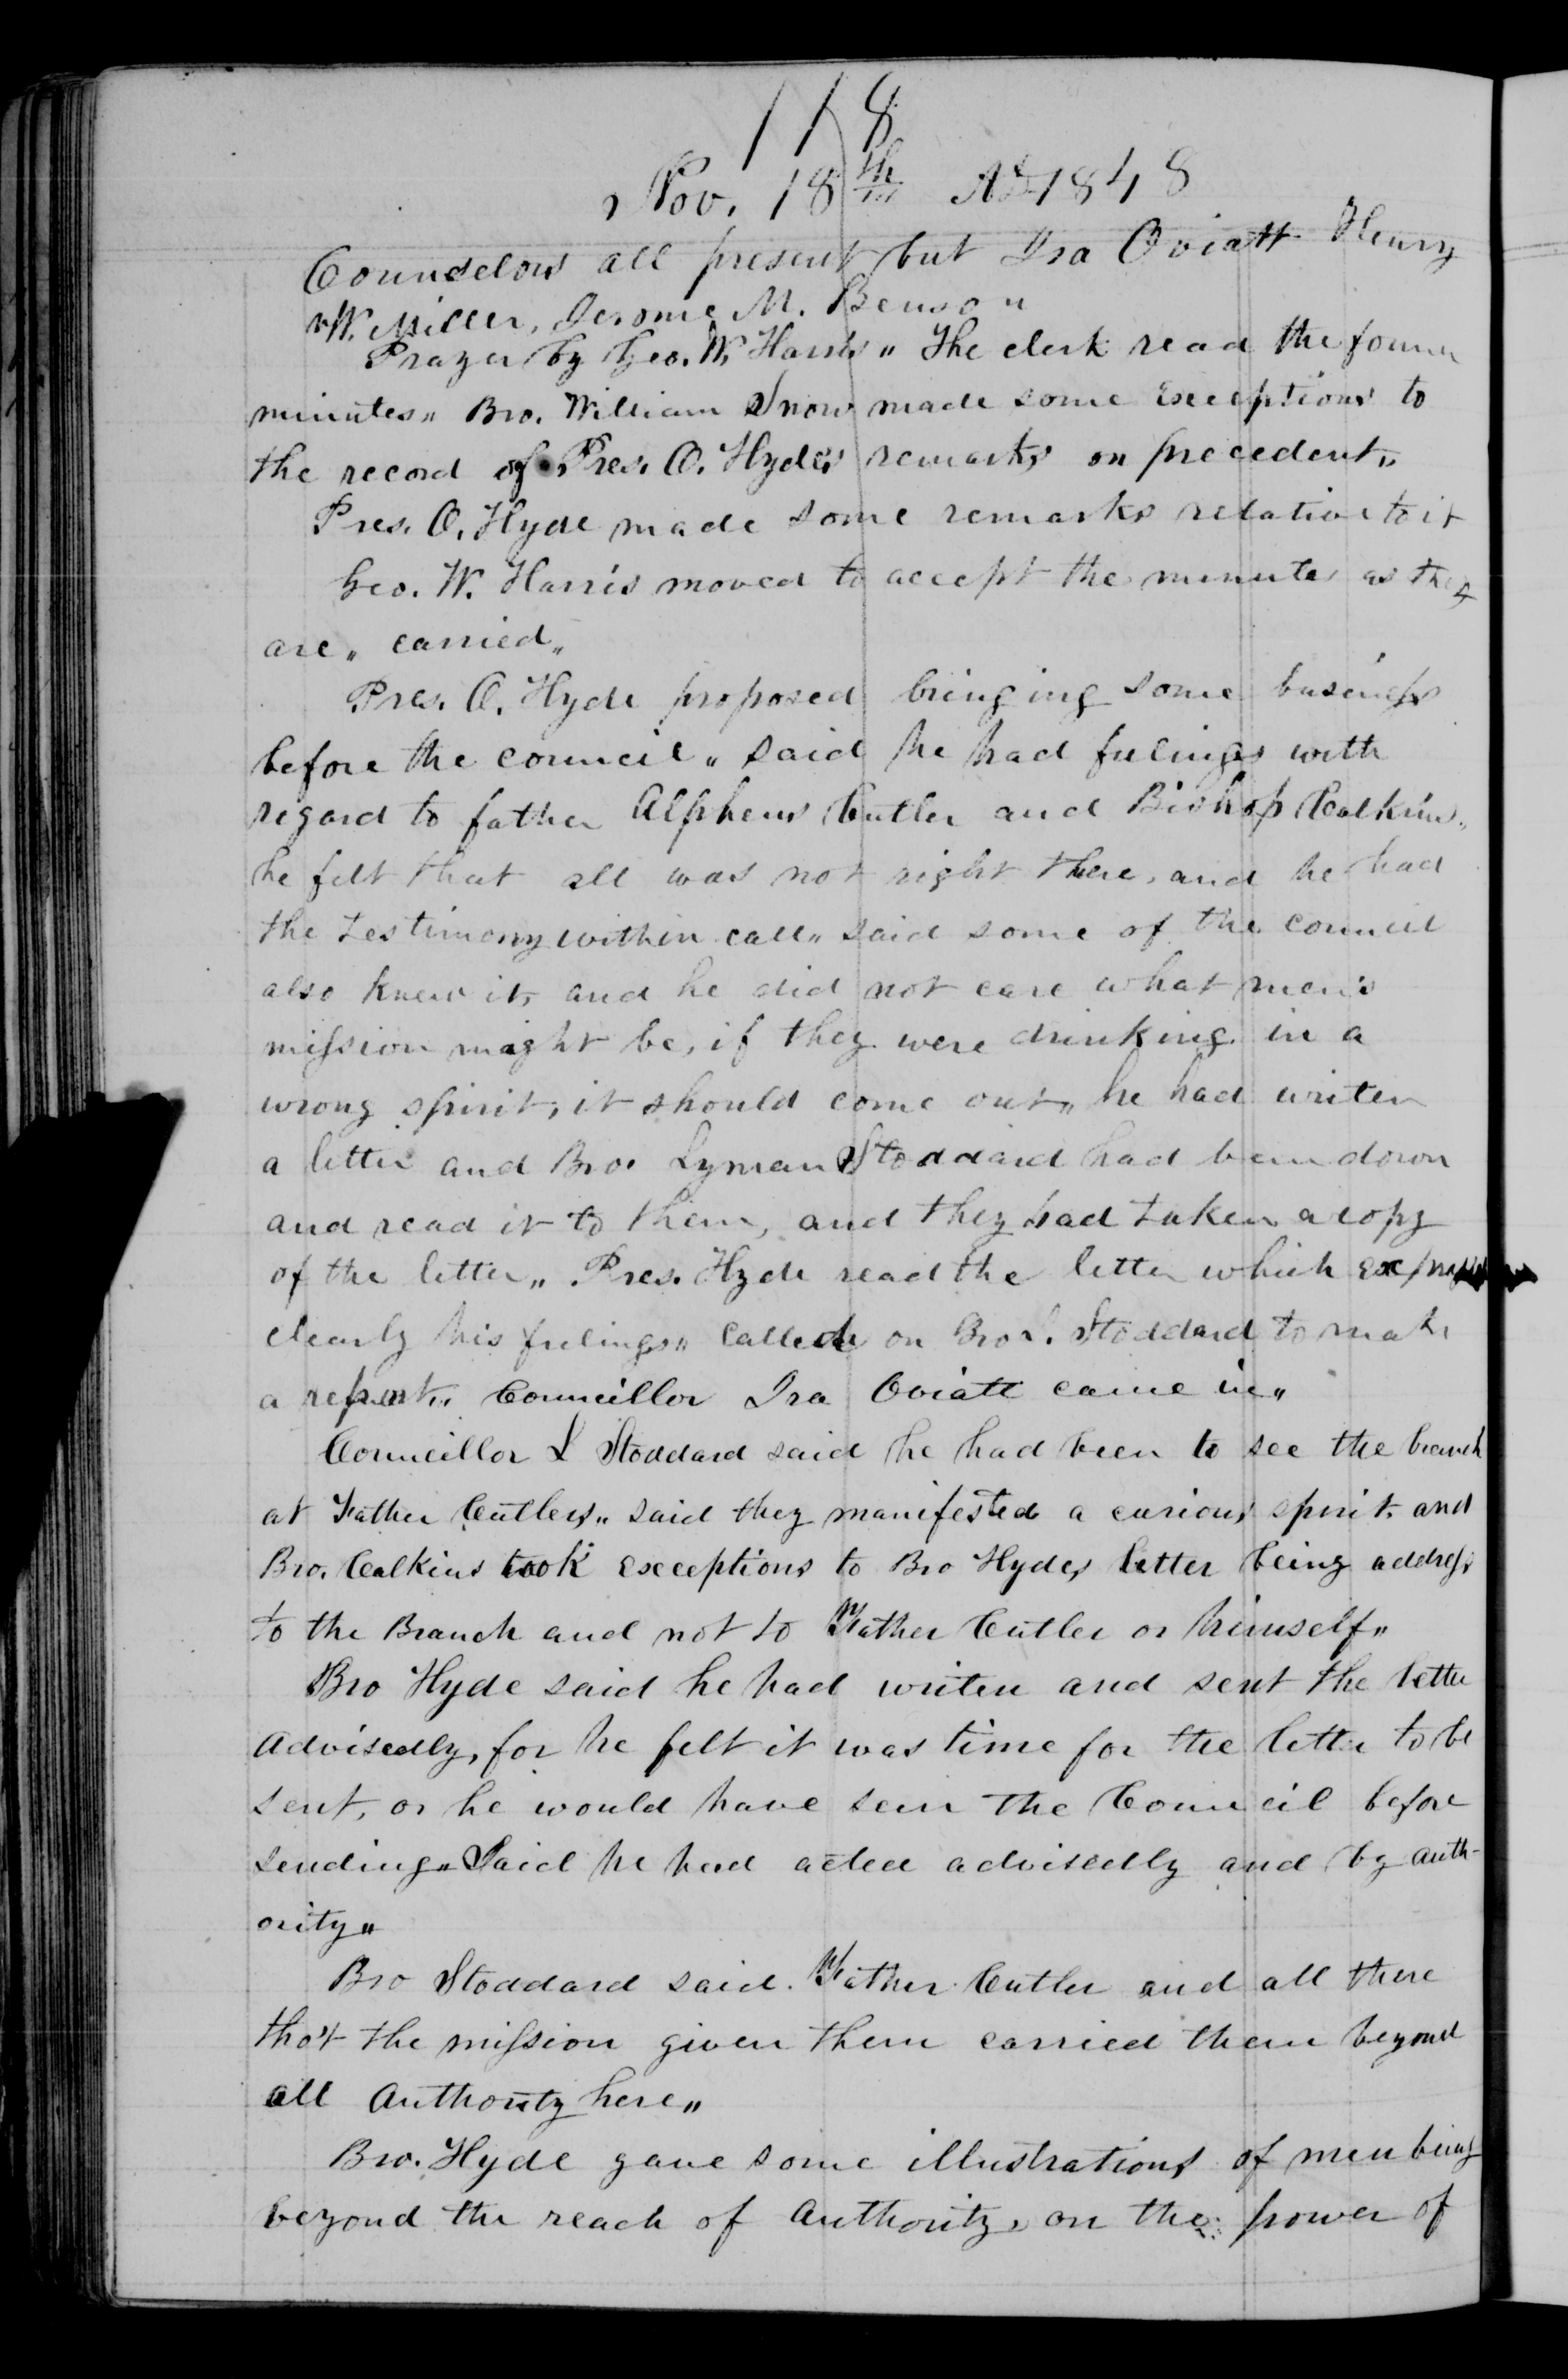 118
Nov. 18th AD 1848
Counselors all present but Ira Oviatt Henry
W. Miller, Jerome M. Benson
Prayer by Geo. W. Harris „ The clerk read the former
minutes „ Bro. William Snow made some exceptions to
the record of Pres. O. Hyde's remarks on precedent „
Pres. O. Hyde made some remarks relative to it
Geo. W. Harris moved to accept the minutes as they
are „ carried „
Pres. O. Hyde proposed bringing some business
before the council „ said he had feelings with
regard to father Alpheus Cutler and Bishop Calkins „
he felt that all was not right there, and he had
the testimony within call „ said some of the council
also knew it, and he did not care what men's
mission might be, if they were drinking in a
wrong spirit, it should come out „ he had writen
a letter and Bro. Lyman Stoddard had been down
and read it to them, and they had taken a copy
of the letter „ Pres. Hyde read the letter which
clearly his feelings „ Called on Bro L. Stoddard to make
a report „ Councillor Ira Oviatt came in „
Councillor L Stoddard said he had been to see the branch
at Father Cutlers „ said they manifested a curious spirit and
Bro. Calkins took exceptions to Bro Hydes letter being address
to the Branch and not to Father Cutler or himself „
Bro Hyde said he had writen and sent the letter
advisedly, for he felt it was time for the letter to be
sent, or he would have seen the Council before
sending „ Said he had acted advisedly and by auth-
ority „
Bro Stoddard said. Father Cutler and all there
tho't the mission given them carried them beyond
all Authority here „
Bro. Hyde gave some illustrations of men being
beyond the reach of Authority, on the power of